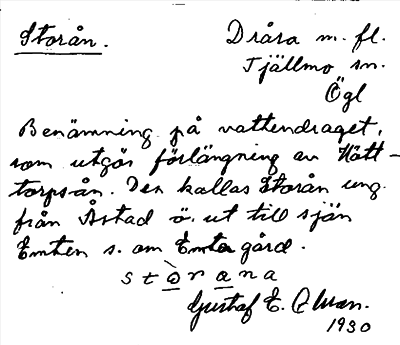 Storån.
Dråsa m. fl.
Tjällmo sn.
Ögl
Benämning på vattendraget,
som utgör förlängning av Hätt-
torpsån. Den kallas Storån ung.
från Åstad ö. ut till sjön
Emten s. om Emtagård.
stò̤rana
Gustaf E. Alman.
1930